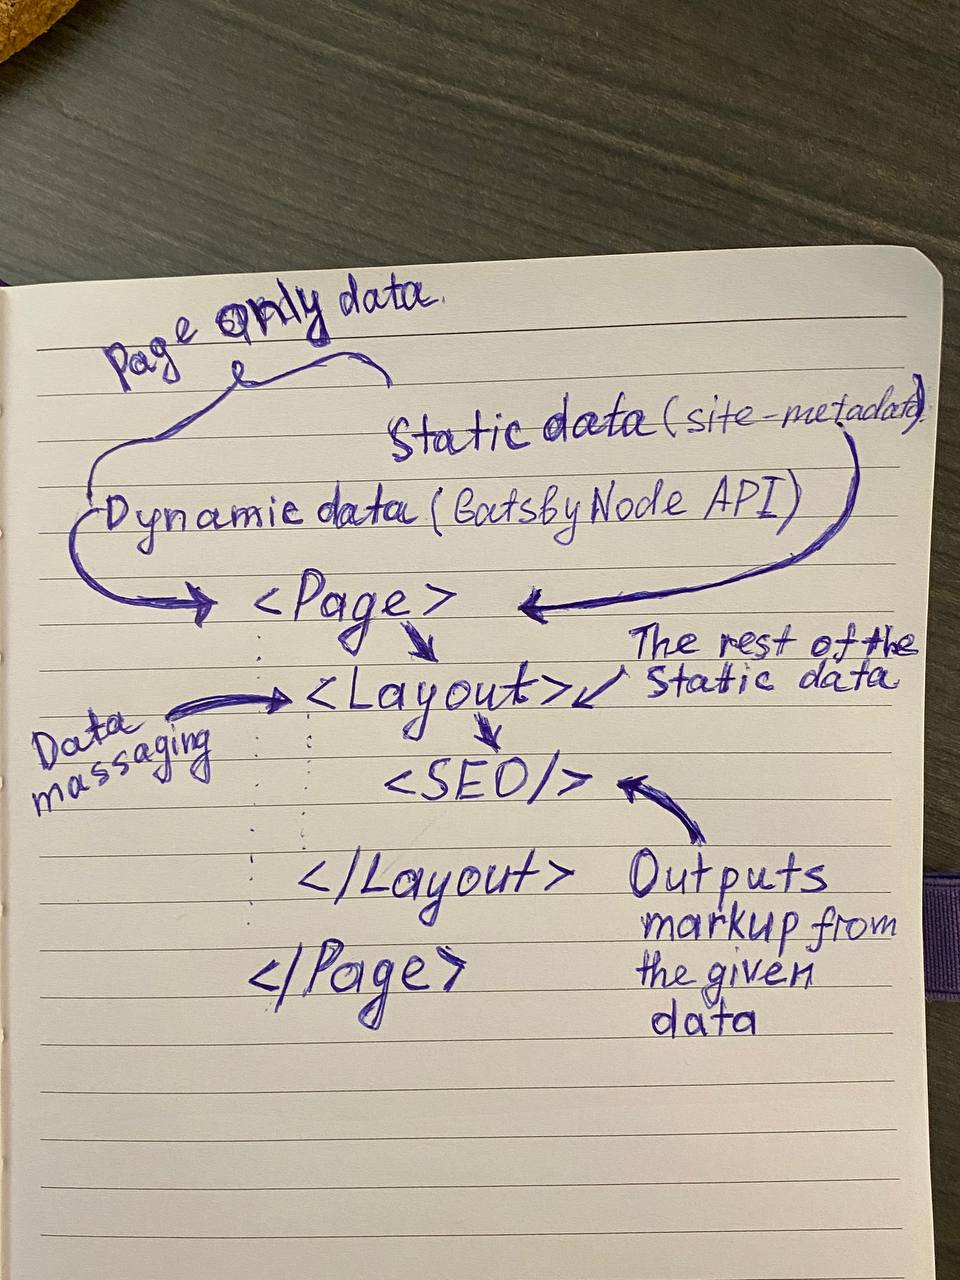 Page only data.
Static data (site-metadata)
Dynamic data (Gatsby Node API)
<Page>
The rest of the
static data
<Layout>
Data
massaging
<SEO/>
</Layout>
Outputs
markup from
the given
data
</Page>